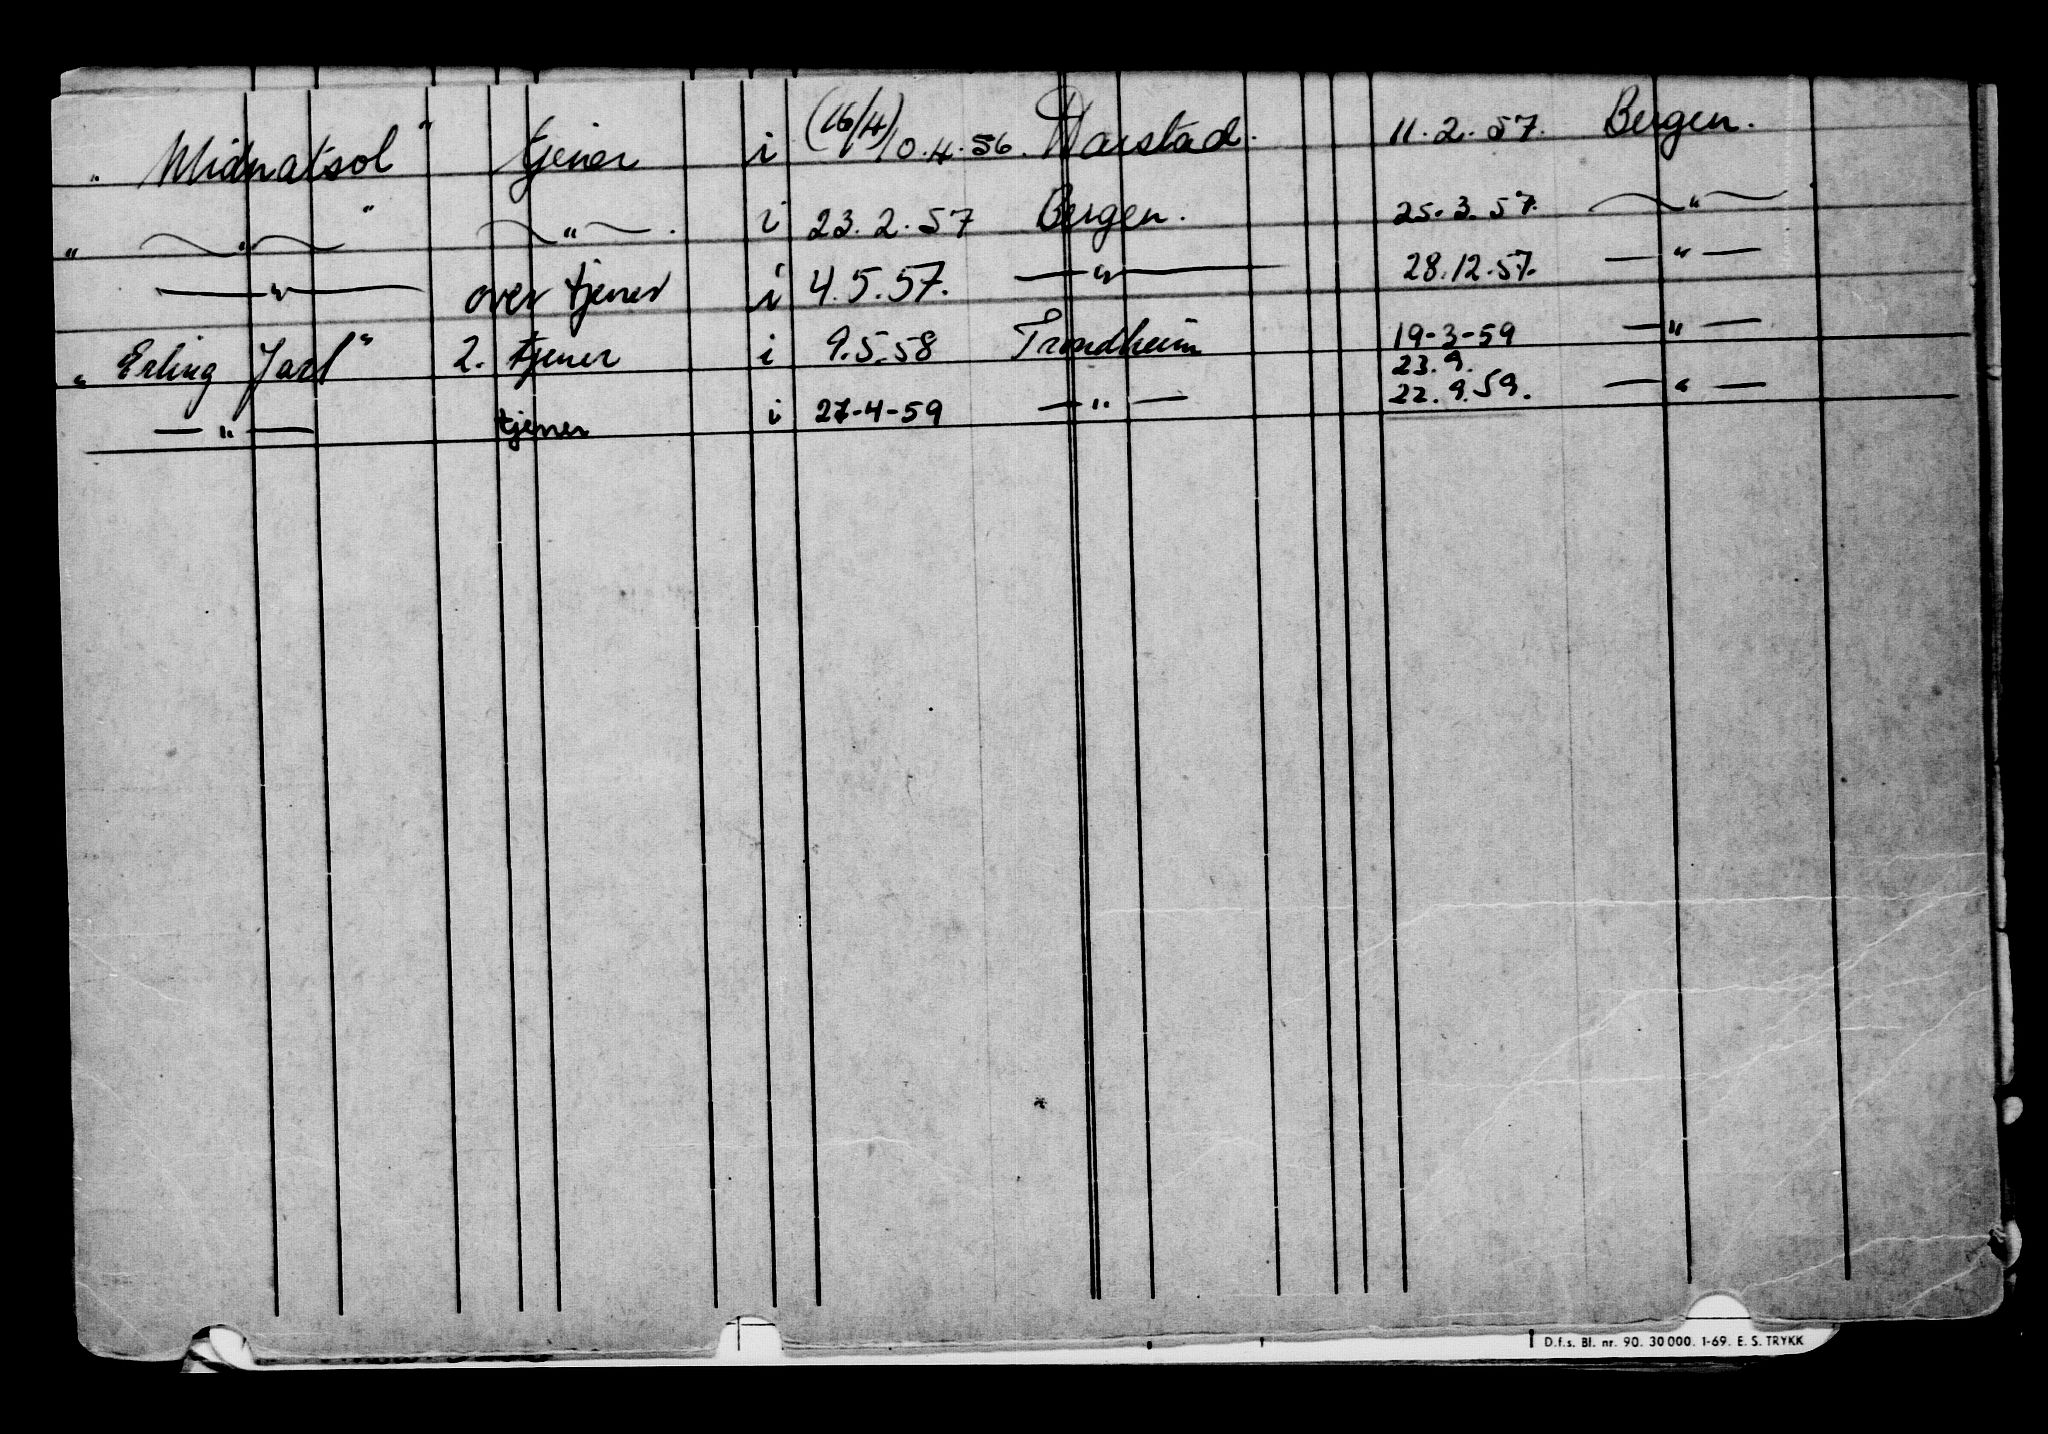 „ Midnatsol" tjener i (16/4) 10.4.56. Harstad. 11.2.57. Bergen.
„ — " — " — " — . i 23.2.57 Bergen. 25.3.57. — " —
— " — over tjener i 4.5.57. — " — 28.12.57. — " —
„ Erling Jarl" 2. tjener i 9.5.58 Trondheim 19-3-59 — " —
23.9.
— " — tjener i 27-4-59 — " — 22.9.59. — " —
D.f.s. Bl. nr. 90. 30 000. 1-69. E. S. TRYKK